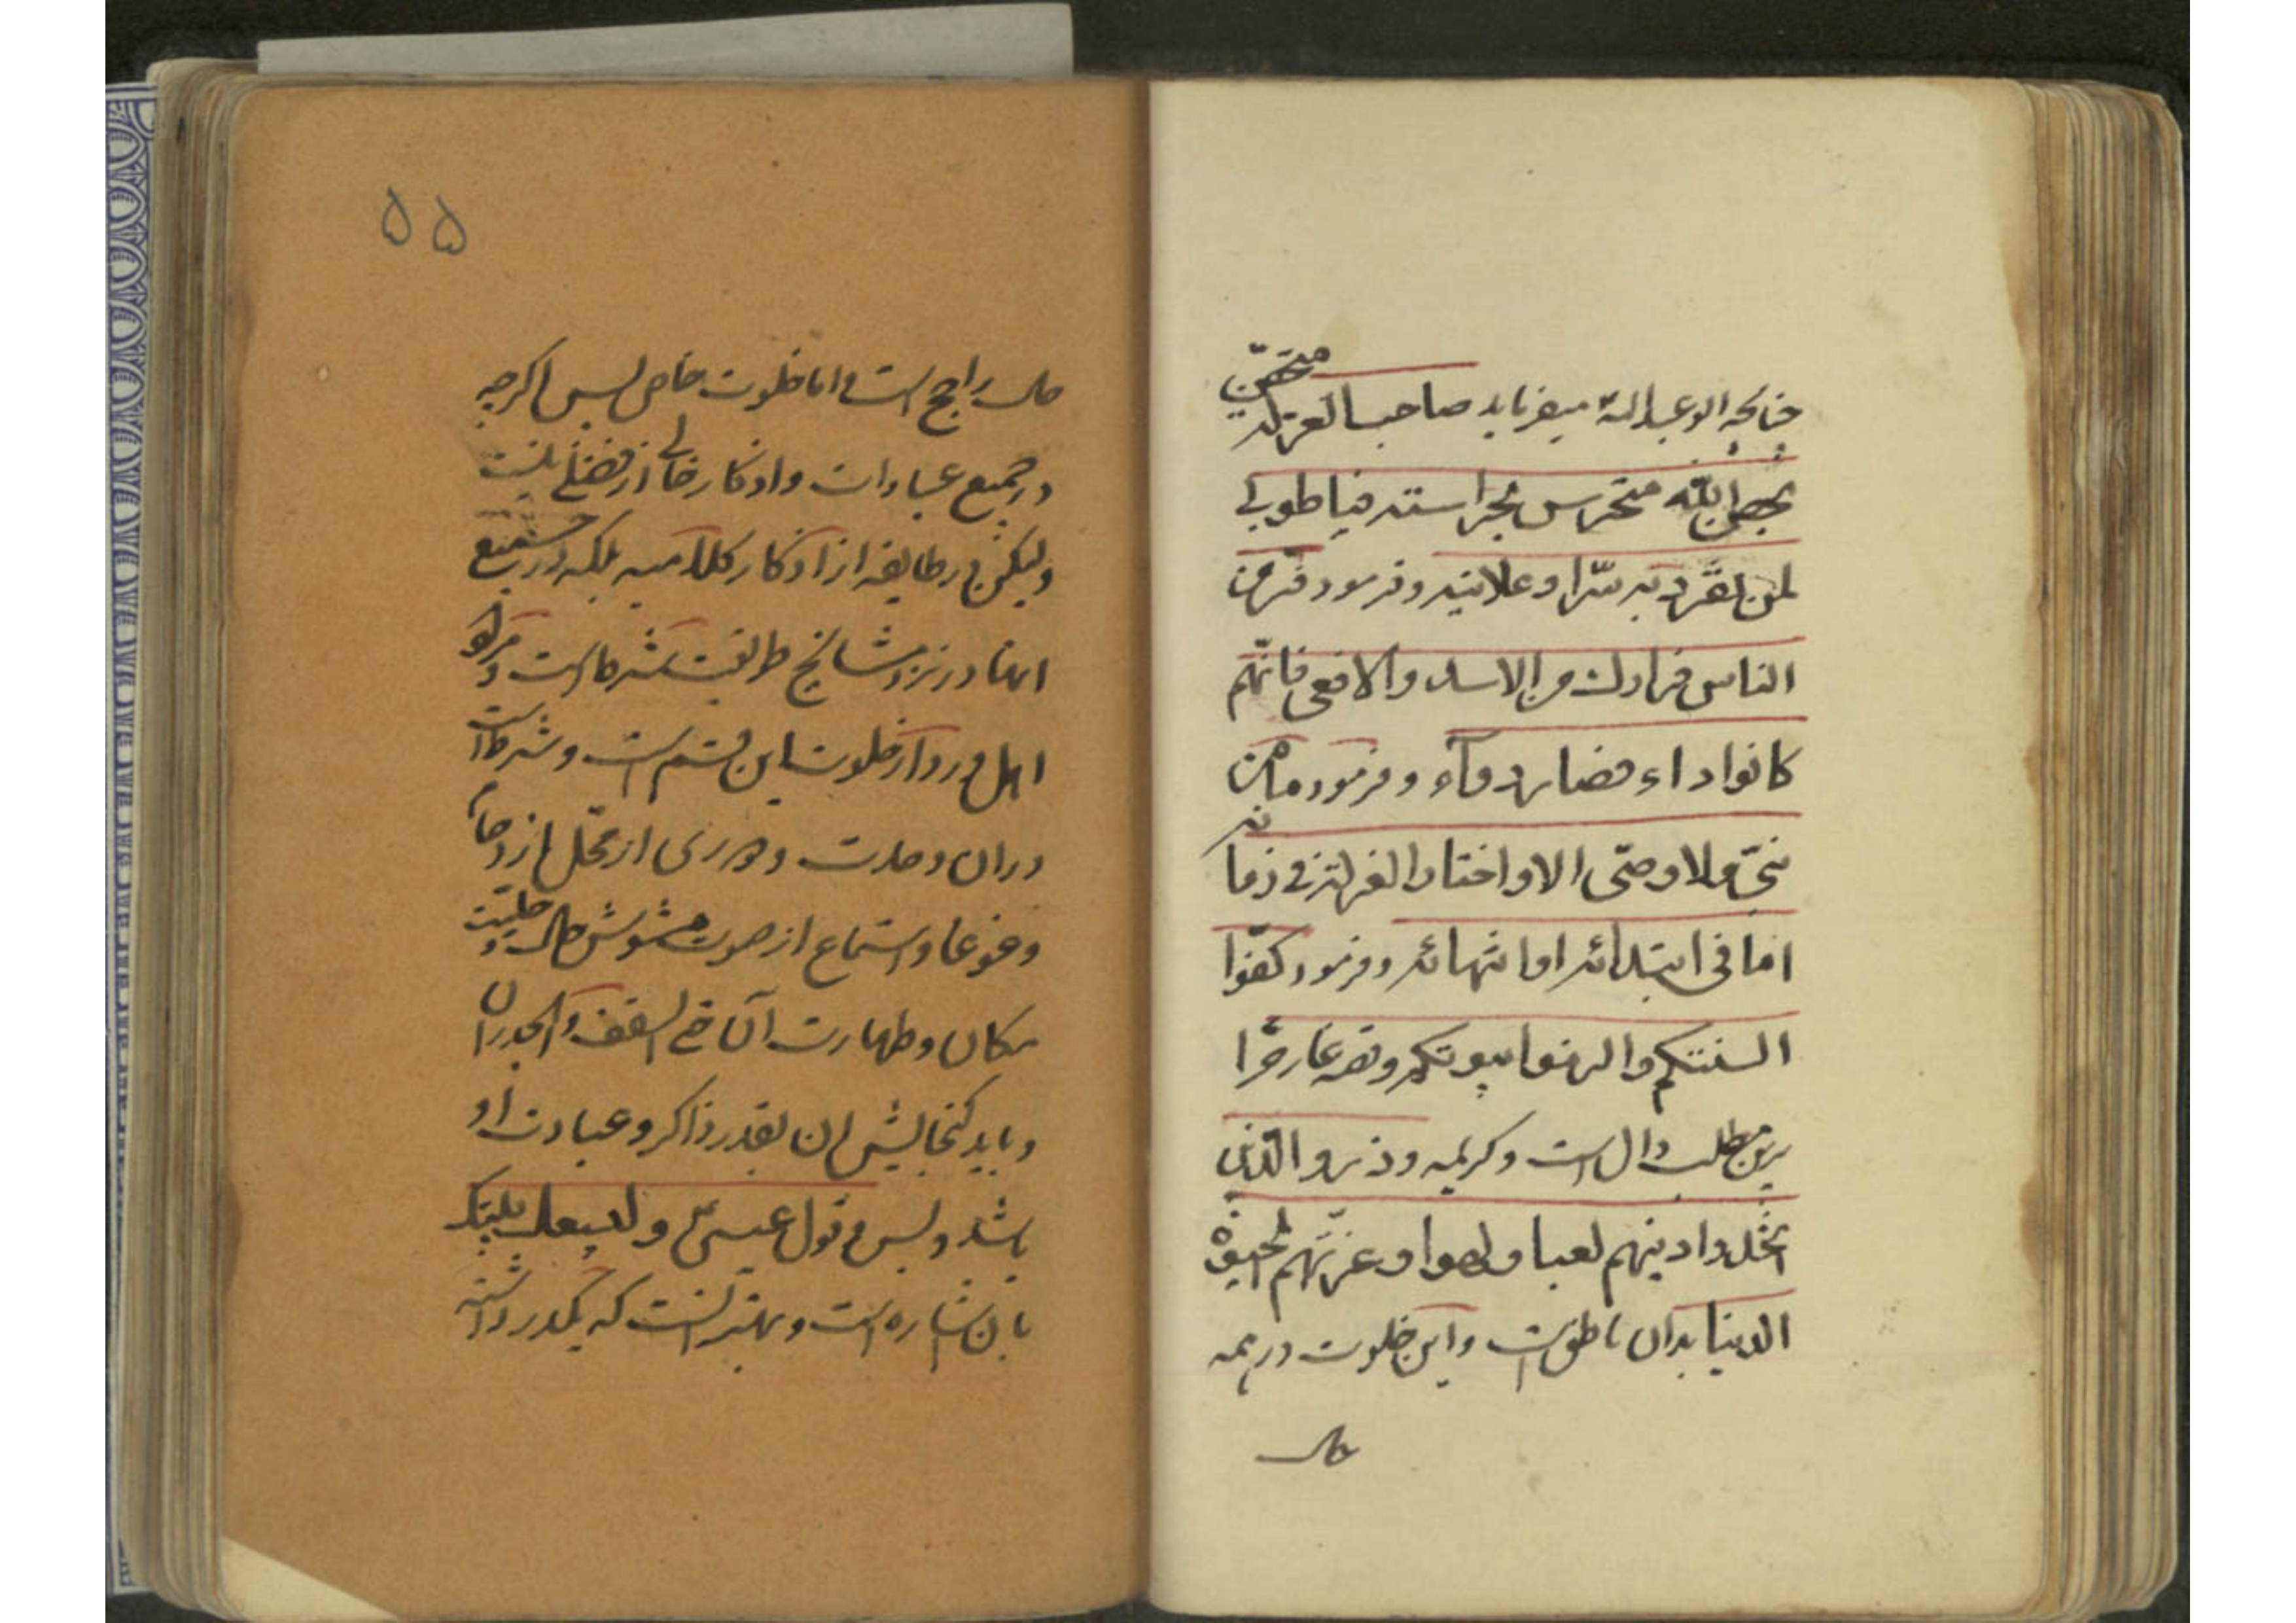 چنانچه ابو عبدالله ع میفرماید صاحب العزلة متحصّن
بحصن الله متحرس بحراسته فیا طوبی
لمن تفرد به سرّا و علانیة و فرمود فرّ من
الناس فرارك من الاسد و الافعی فانّهم
كانوا دواء فصاروا داء و فرمود ما من
نبیّ ولا وصّی الا و اختار العزلة فی زمانه
اما فی ابتدائه او انتهائه و فرمود كفّوا
السنتكم و الزموا بیوتكم و قصه غار حرا
برین مطلب دال است و کریمه و ذر و الّذین
اتّخذوا دینهم لعبا و لهوا و غرّتهم الحیوة
الدنیا بدان ناطق است و این خلوت در همه
حال
۵۵
حال راجح است و اما خلوت خاص پس اگر چه
در جمیع عبادات و اذکار خالی از فضلی نیست
ولیکن در طایفه از اذکار کلامیه بلکه در جمیع
انها در نزد مشایخ طریقت شرط است و مراد
اهل ورد از خلوت این قسم است و شرط است
دران وحدت و دوری از محل ازدحام
و غوغا و استماع از صوت مشوش حال و حلیّت
مکان و طهارت آن حتی السقف و الجدران
و باید گنجایش ان بقدر ذاکر و عبادت او
باشد و بس و قول عیسی ع و لیسعك بیتك
بان اشاره است و بهتر آنست که یکدر داشته